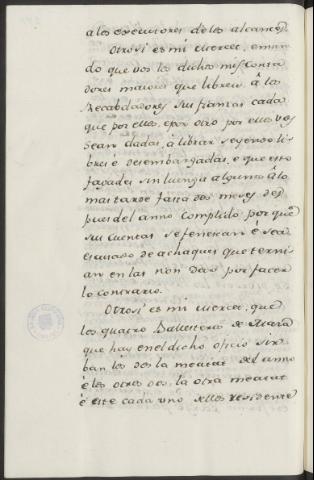 a los executores de los alcances.
Otrosi es mi merced, e man
do que vos los dichos mis Conta
dores maiores que libreis á los
Recabdadores sus fianzas cada
que por ellos, e por otro por ellos vos
sean dadas, á librar seyendo li
bres é desembargadas, e que esto
fagades sin luenga alguna á lo
mas tarde fasta dos meses des
pues del anno complido, por que
sus cuentas se fenescan é sea
escusado de achaques que terni
an en las non dar por facer
lo contrario.
Otrosi es mi merced, que
los quatro Ballesteros de Maza
que hay en el dicho oficio sir
ban los dos la meatat del anno
é los otros dos la otra meatat
é este cada uno dellos residente